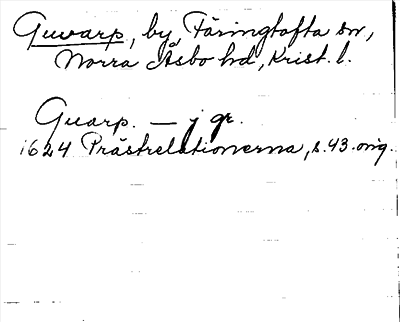 Guvarp, by, Färingtofta sn,
Norra Åsbo hd, Krist. l.
Guarp. — j gr.
1624 Prästrelationerna, s. 43. orig.